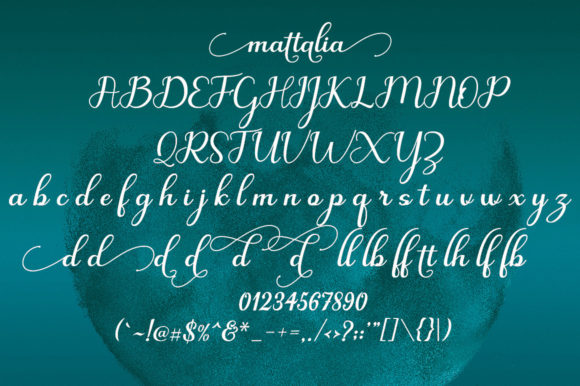 mattalia
ABDEFGHIJKLMNOP
QRSTUVWXYZ
abcdefghijklmnopqrstuvwxyz
dd d d d d ll lb ff tt lh lf fb
01234567890
(`~!@#$%^&*_-+=,./<>?:;'"[]\{}|)